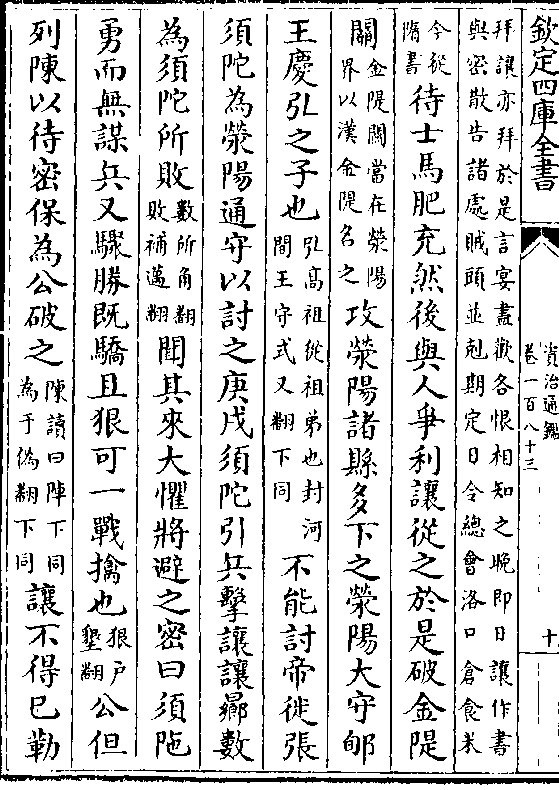 欽定四庫全書
資治通鑑
卷一百八十三
十
拜讓亦拜於是言宴盡歡各恨相知之晚即日讓作書
與密散告諸處賊頭並剋期定日令總會洛口倉食米
今從
隋書
待士馬肥充然後與人爭利讓從之於是破金隄
關
金隄關當在滎陽
界以漢金隄名之
攻滎陽諸縣多下之滎陽大守郇
王慶弘之子也
弘髙祖從祖弟也封河
間王守式又翻下同
不能討帝徙張
須陀為滎陽通守以討之庚戌須陀引兵擊讓讓曏數
為須陀所敗
數所角翻
敗補邁翻
聞其來大懼將避之密曰須陁
勇而無謀兵又驟勝既驕且狠可一戰擒也
狠户
墾翻
公但
列陳以待密保為公破之
陳讀曰陣下同
為于偽翻下同
讓不得已勒